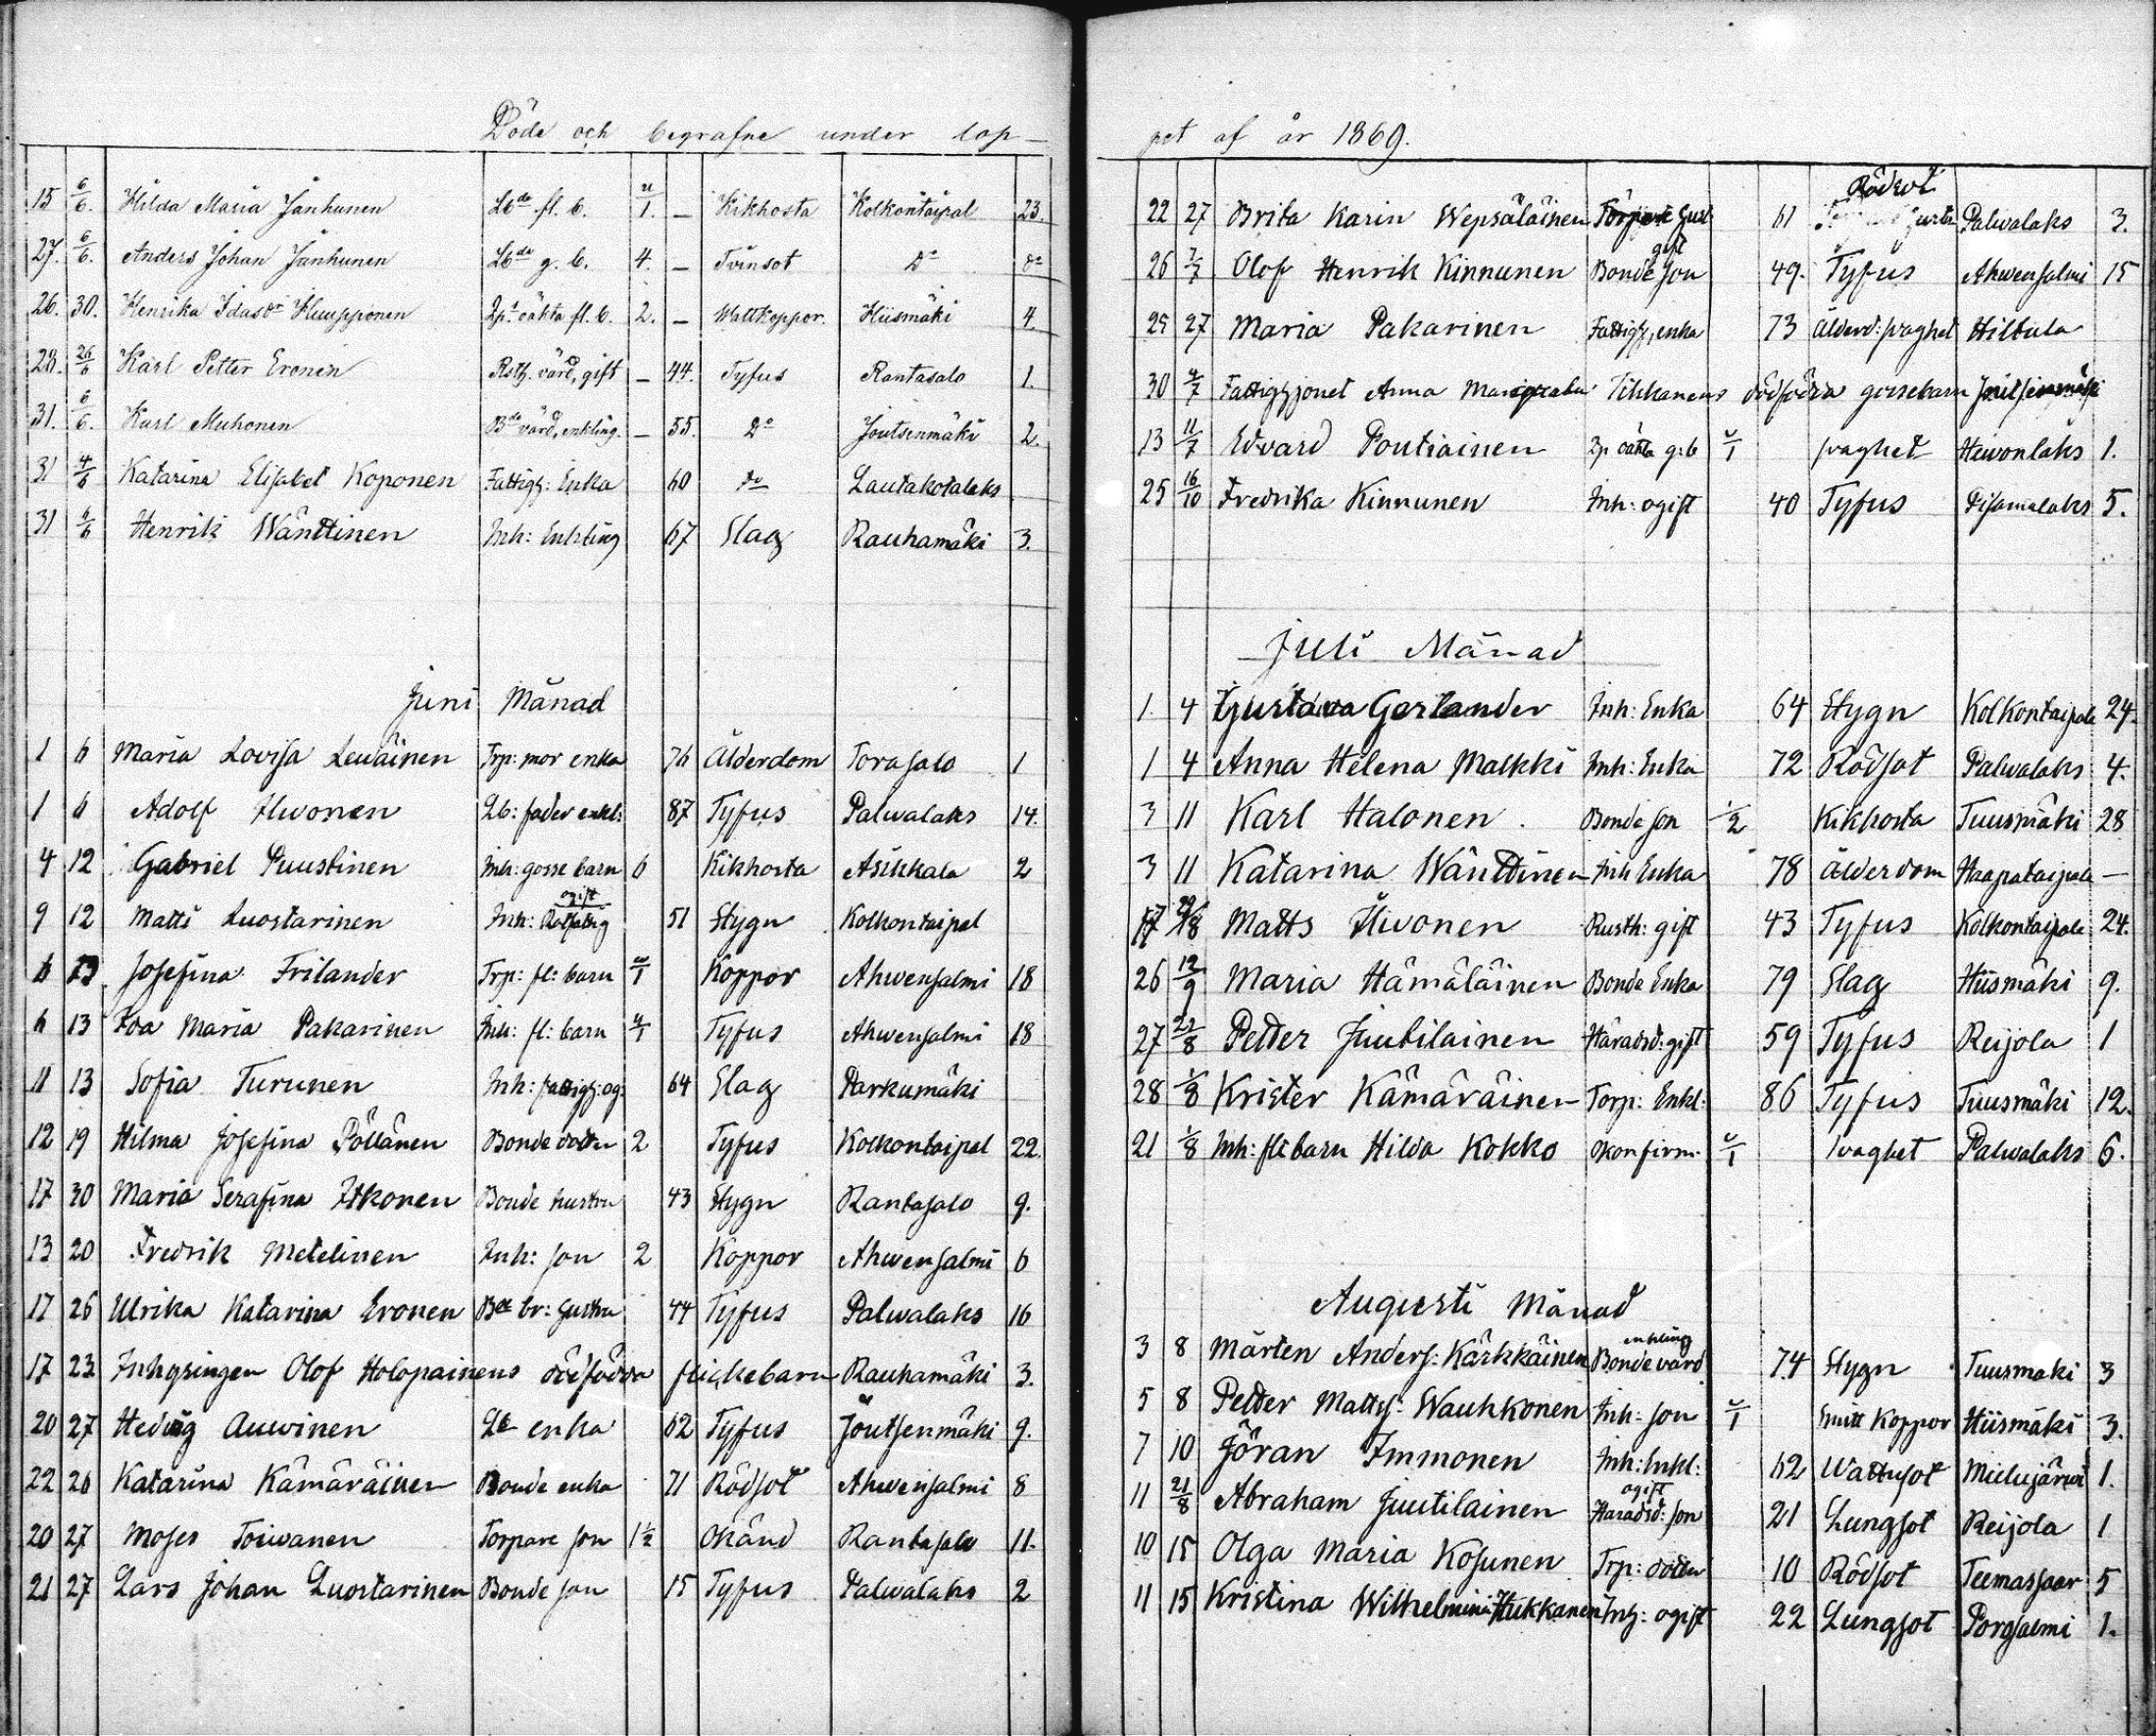 Döde och begrafne under lop-
15 6/6. Hilda Maria Janhunen Lbde fl. b. u/1. – Kikhosta Kolkontaipal 23.
27. 6/6. Anders Johan Janhunen Lbde g. b. 4. – Tvinsot Do do
26. 30. Henrika Idasdr Huupponen 2p. oäkta fl. b. 2. – Wattkoppor. Hiismäki 4.
28. 26/6 Karl Petter Eronen Rsth. värd, gift – 44. Tyfus Rantasalo 1.
31. 6/6. Karl Muhonen Bde värd, enkling. – 55. Do Joutsenmäki 2.
31 4/6 Katarina Elisabet Koponen Fattigh: Enka 60 do Lautakotalaks
31 6/6 Henrik Wänttinen Inh: Enkling 67 Slag Rauhamäki 3.
Juni Månad
1 6 Maria Lovisa Lewäinen Trp: mor enka 76 Ålderdom Torasalo 1
1 6 Adolf Ihvonen Lb: fader enkl: 87 Tyfus Palwalaks 14.
4 12 Gabriel Puustinen Inh: gosse barn 6 Kikhosta Asikkala 2
ogift
9 12 Matti Luostarinen Inh: Rotfattig 51 Stygn Kolkontaipal
6 13 Josefina Frilander Trp: fl: barn u/1 Koppor Ahwensalmi 18
6 13 Eva Maria Pakarinen Inh: fl: barn u/1 Tyfus Ahwensalmi 18
11 13 Sofia Turunen Inh: fattigh: og: 64 Slag Parkumäki
12 19 Hilma Josefina Pöllänen Bonde dotter 2 Tyfus Kolkontaipal 22.
17 30 Maria Serafina Itkonen Bonde hustru 43 Stygn Rantasalo 9.
13 20 Fredrik Metelinen Inh: son 2 Koppor Ahwensalmi 6
17 26 Ulrika Katarina Eronen Bde br: hustru 44 Tyfus Palwalaks 16
17 23 Inhysingen Olof Holopainens dödfödda flickebarn Rauhamäki 3.
20 27 Hedvig Auvinen Ld enka 62 Tyfus Joutsenmäki 9.
22 26 Katarina Kämäräinen Bonde enka 71 Rödsot Ahwensalmi 8
20 27 Moses Toiwanen Torpare son 1½ Okänd Rantasalo 11.
21 27 Lars Johan Luostarinen Bonde son 15 Tyfus Palwalaks 2
pet af år 1869.
Rödsot
22 27 Brita Karin Wepsäläinen 61 Palwalaks 3.
gift
26 7/7 Olof Henrik Kinnunen Bonde son 49. Tyfus Ahwensalmi 15
25 27 Maria Pakarinen Fattigh, enka 73 Ålderd: svaghet Hiltula
30 4/7 Fattighjonet Anna Margreta Tikkanens dödfödda gossebarn Joutsenmäki
13 11/7 Edvard Poutiainen 2p oäkta g: b u/1 svaghet Hewonlaks 1.
25 16/10 Fredrika Kinnunen Inh: ogift 40 Tyfus Pisamalaks 5.
Juli Månad
1. 4 Gustava Gerlander Inh: Enka 64 Stygn Kolkontaipale 24.
1 4 Anna Helena Malkki Inh: Enka 72 Rödsot Palwalaks 4.
3 11 Karl Halonen Bonde son 1/2 Kikhosta Tuusmäki 28
3 11 Katarina Wänttinen Inh Enka 78 Ålderdom Haapataipale –
17 29/8 Matts Ihvonen Rusth: gift 43 Tyfus Kolkontaipale 24.
26 12/9 Maria Hämäläinen Bonde Enka 79 Slag Hiismäki 9.
27 22/8 Petter Juutilainen Häradsd: gift 59 Tyfus Reijola 1
28 1/8 Krister Kämäräinen Torp: Enkl: 86 Tyfus Tuusmäki 12.
21 1/8 Inh: flickbarn Hilda Kokko okonfirm. u/1 svaghet Palwalaks 6.
Augusti Månad
enkling
3 8 Mårten Anders: Kärkkäinen Bonde värd 74 Stygn Tuusmäki 3
5 8 Petter Matts: Wauhkonen Inh: son u/1 Smitt Koppor Hiismäki 3.
7 10 Jöran Immonen Inh: Enkl: 62 Wattusot Mielujärwi 1.
ogift
11 21/8 Abraham Juutilainen Häradsd: son 21 Lungsot Reijola 1
10 15 Olga Maria Kosunen Trp: dotter 10 Rödsot Teemassaar 5
11 15 Kristina Wilhelmina Hukkanen Inh: ogift 22 Lungsot Porosalmi 1.